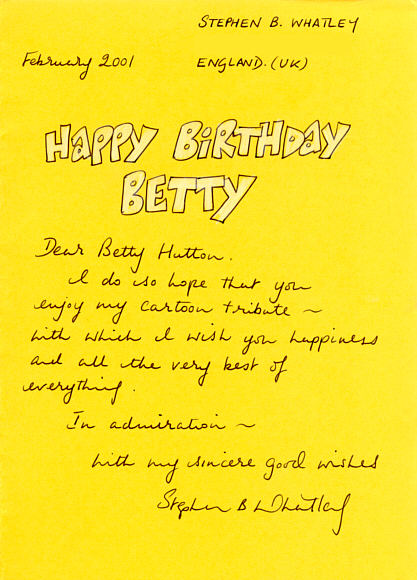 STEPHEN B. WHATLEY
February 2001 ENGLAND. (UK)
HAPPY BiRTHDAY
BETTY
Dear Betty Hutton.
I do so hope that you
enjoy my cartoon tribute ~
with which I wish you happiness
and all the very best of
everything.
In admiration ~
with my sincere good wishes
Stephen B Whatley